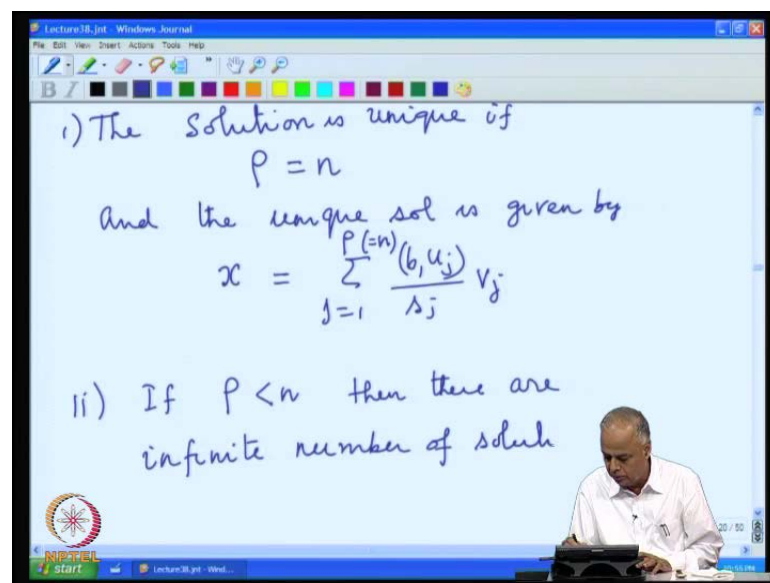 Lecture38.jnt - Windows Journal
File Edit View Insert Actions Tools Help
B I
i) The Solution is unique if
ρ = n
and the unique sol is given by
x = Σ_{j=1}^{ρ(=n)} (b, u_j)/s_j v_j
ii) If ρ < n then there are
infinite number of soluti
20 / 50
NPTEL
start Lecture38.jnt - Wind...